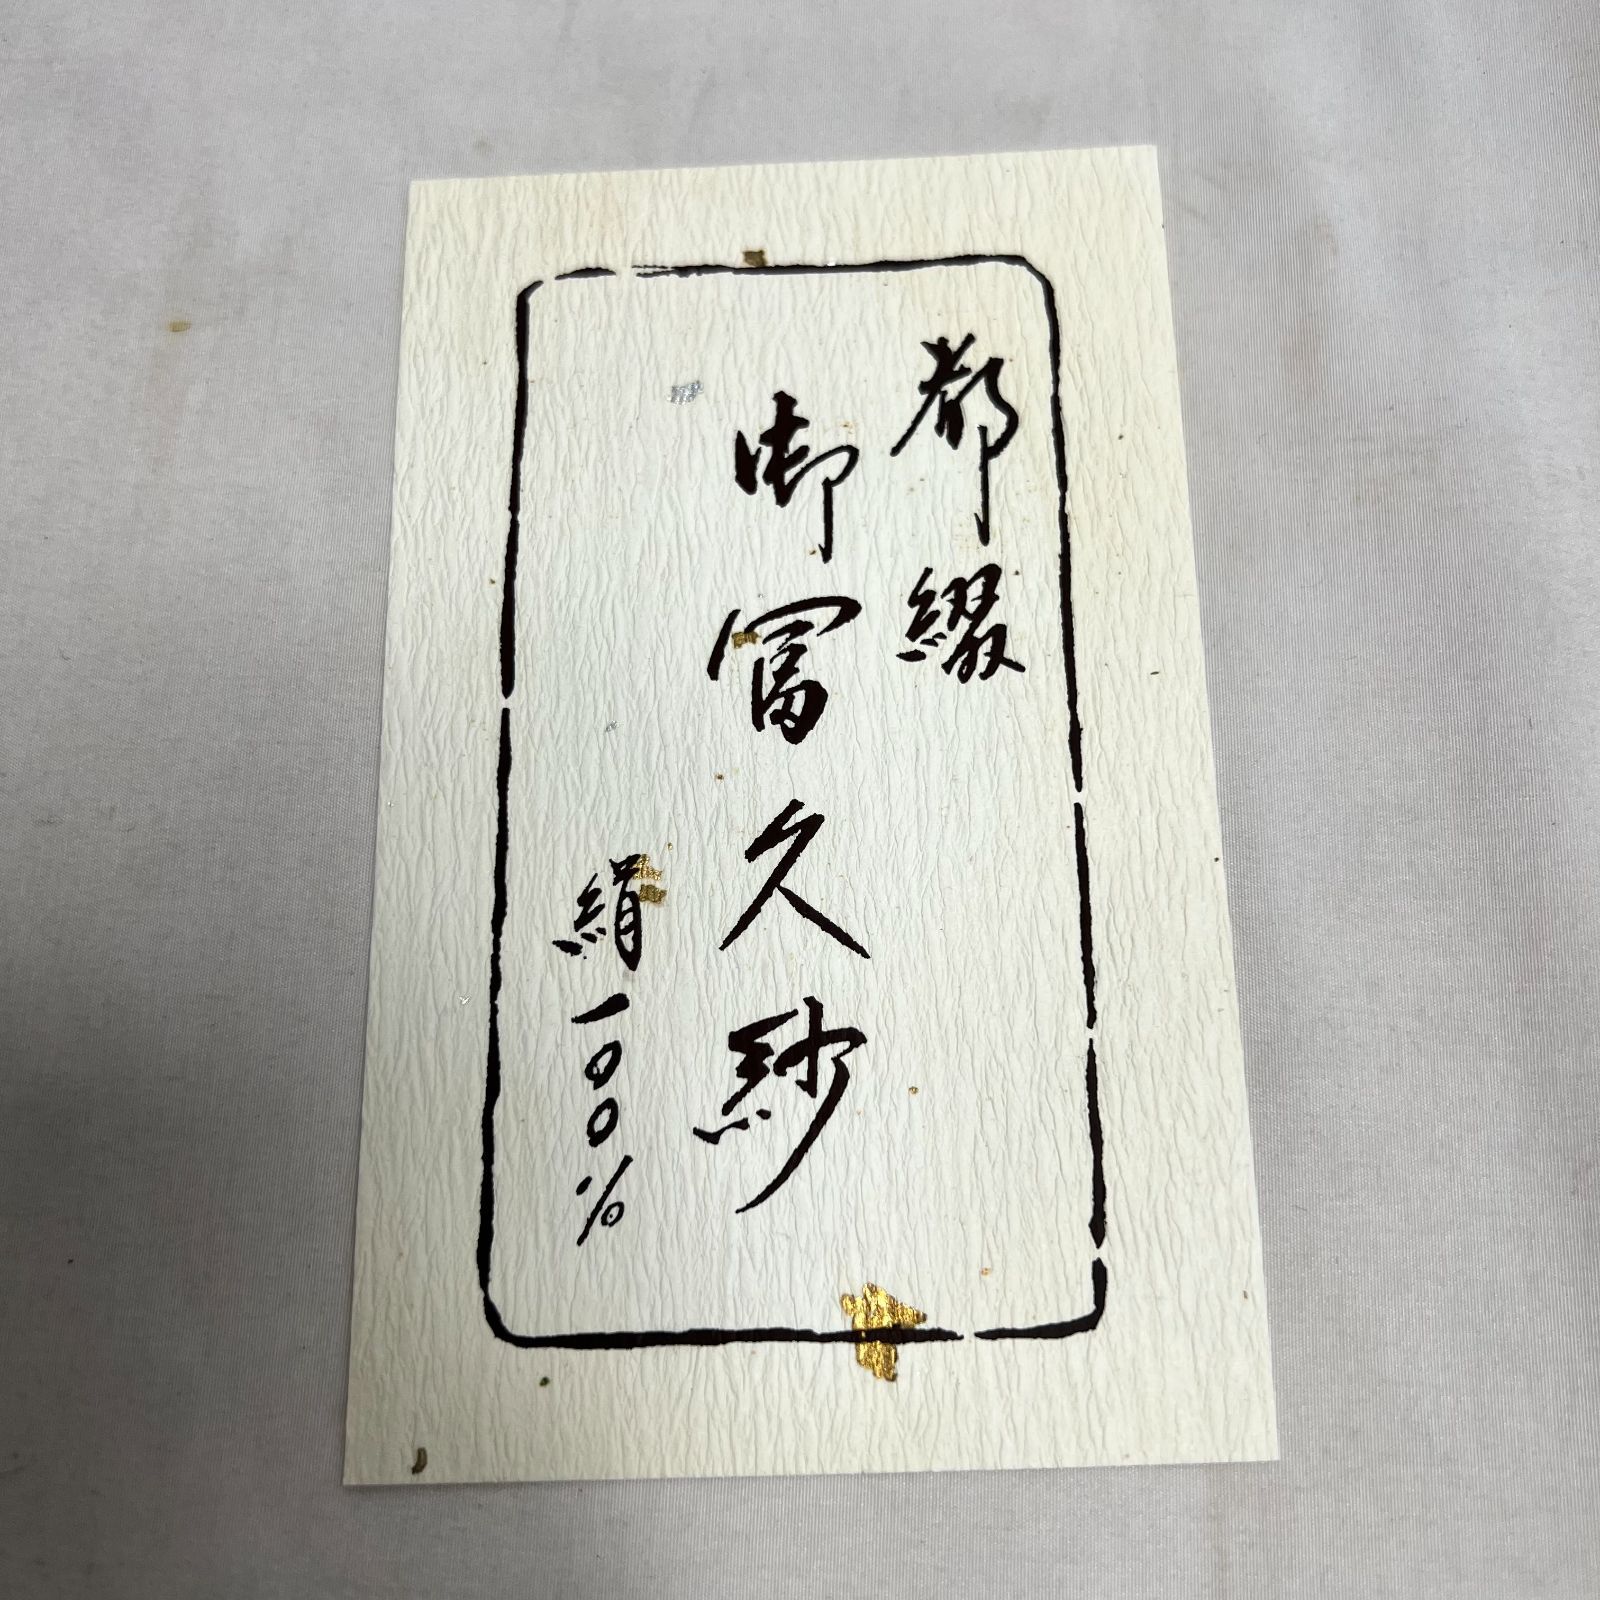 都綴
御冨久紗
絹一〇〇%